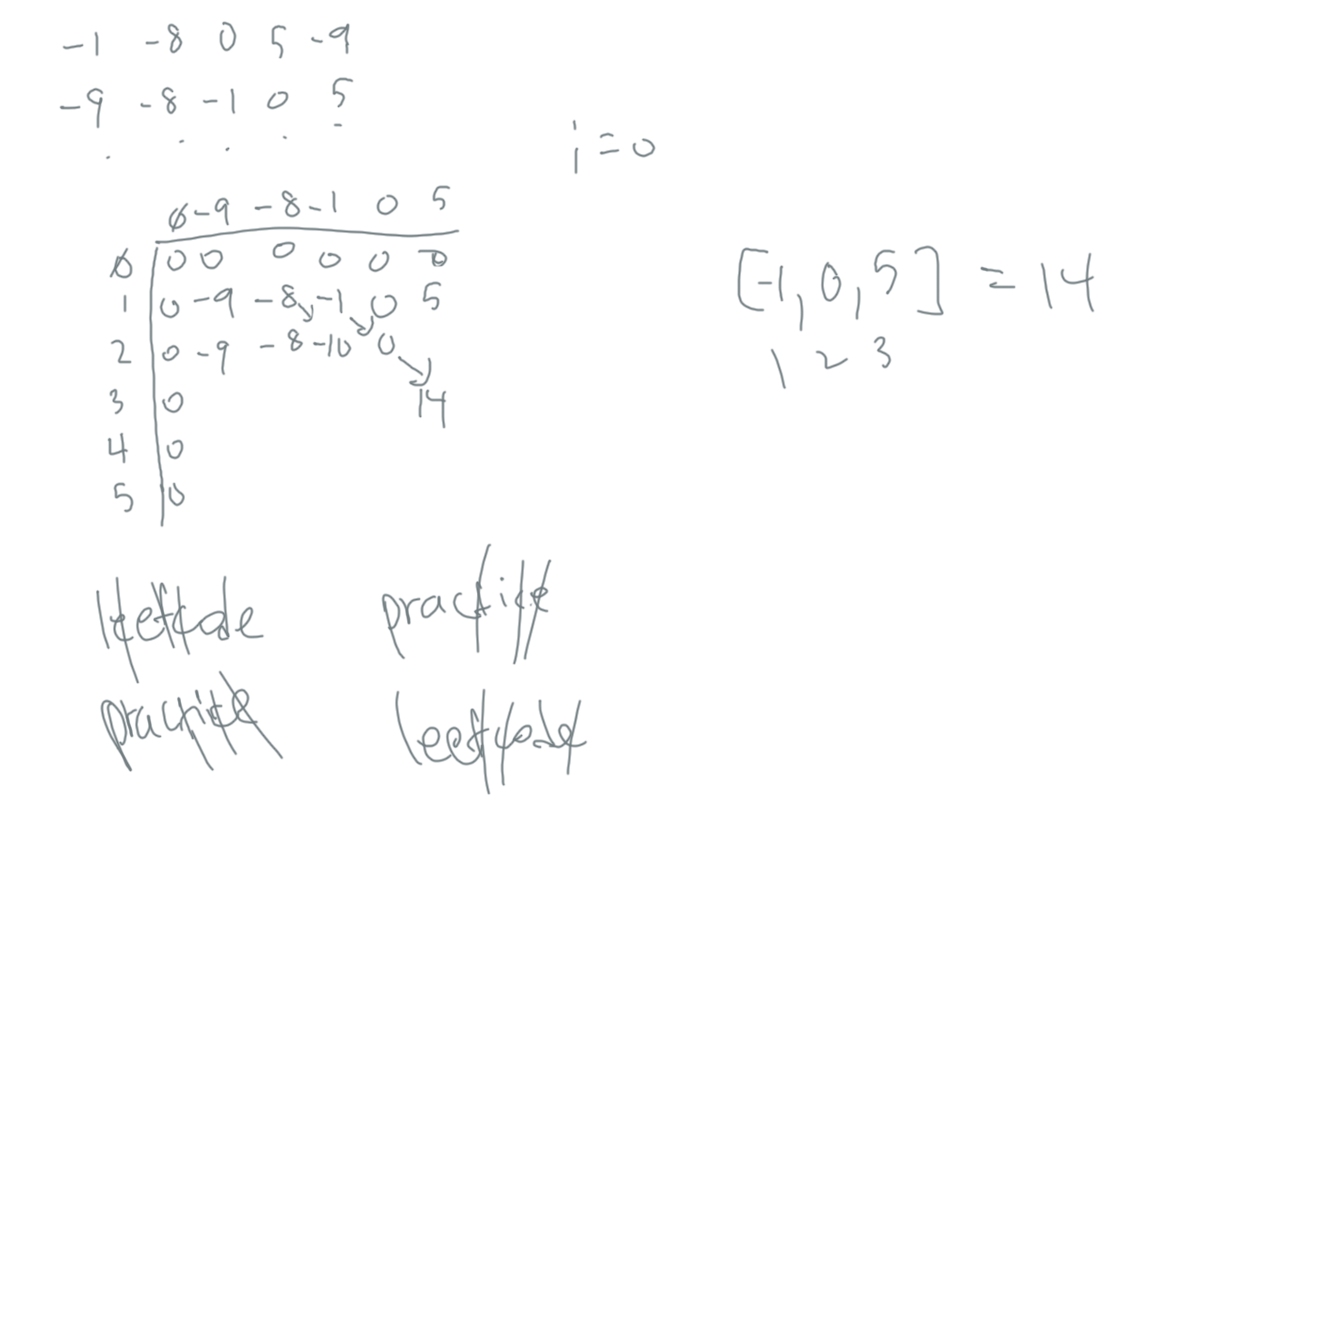 -1 -8 0 5 -9
-9 -8 -1 0 5
i=0
ø -9 -8 -1 0 5
ø 0 0 0 0 0 0
1 0 -9 -8 -1 0 5
2 0 -9 -8 -10 0
3 0 14
4 0
5 0
[-1, 0, 5] = 14
1 2 3
leetcode practice
practice leetcode